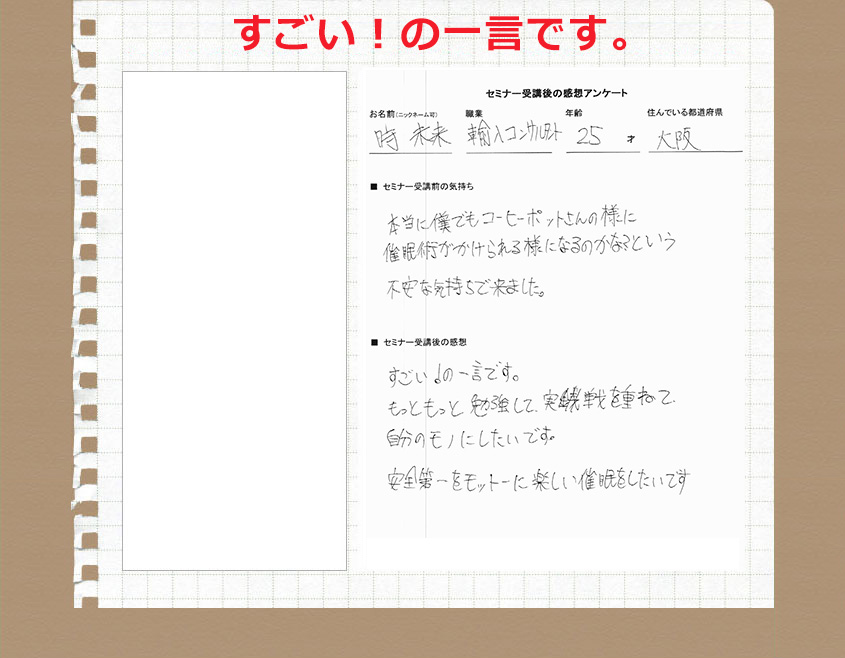 すごい！の一言です。
セミナー受講後の感想アンケート
お名前(ニックネーム可) 職業 年齢 住んでいる都道府県
時 未来 輸入コンサルタント 25 才 大阪
■ セミナー受講前の気持ち
本当に僕でもコーヒーポットさんの様に
催眠術がかけられる様になるのかな?という
不安な気持ちで来ました。
■ セミナー受講後の感想
すごい!の一言です。
もっともっと勉強して、実戦を重ねて、
自分のモノにしたいです。
安全第一をモットーに楽しい催眠をしたいです